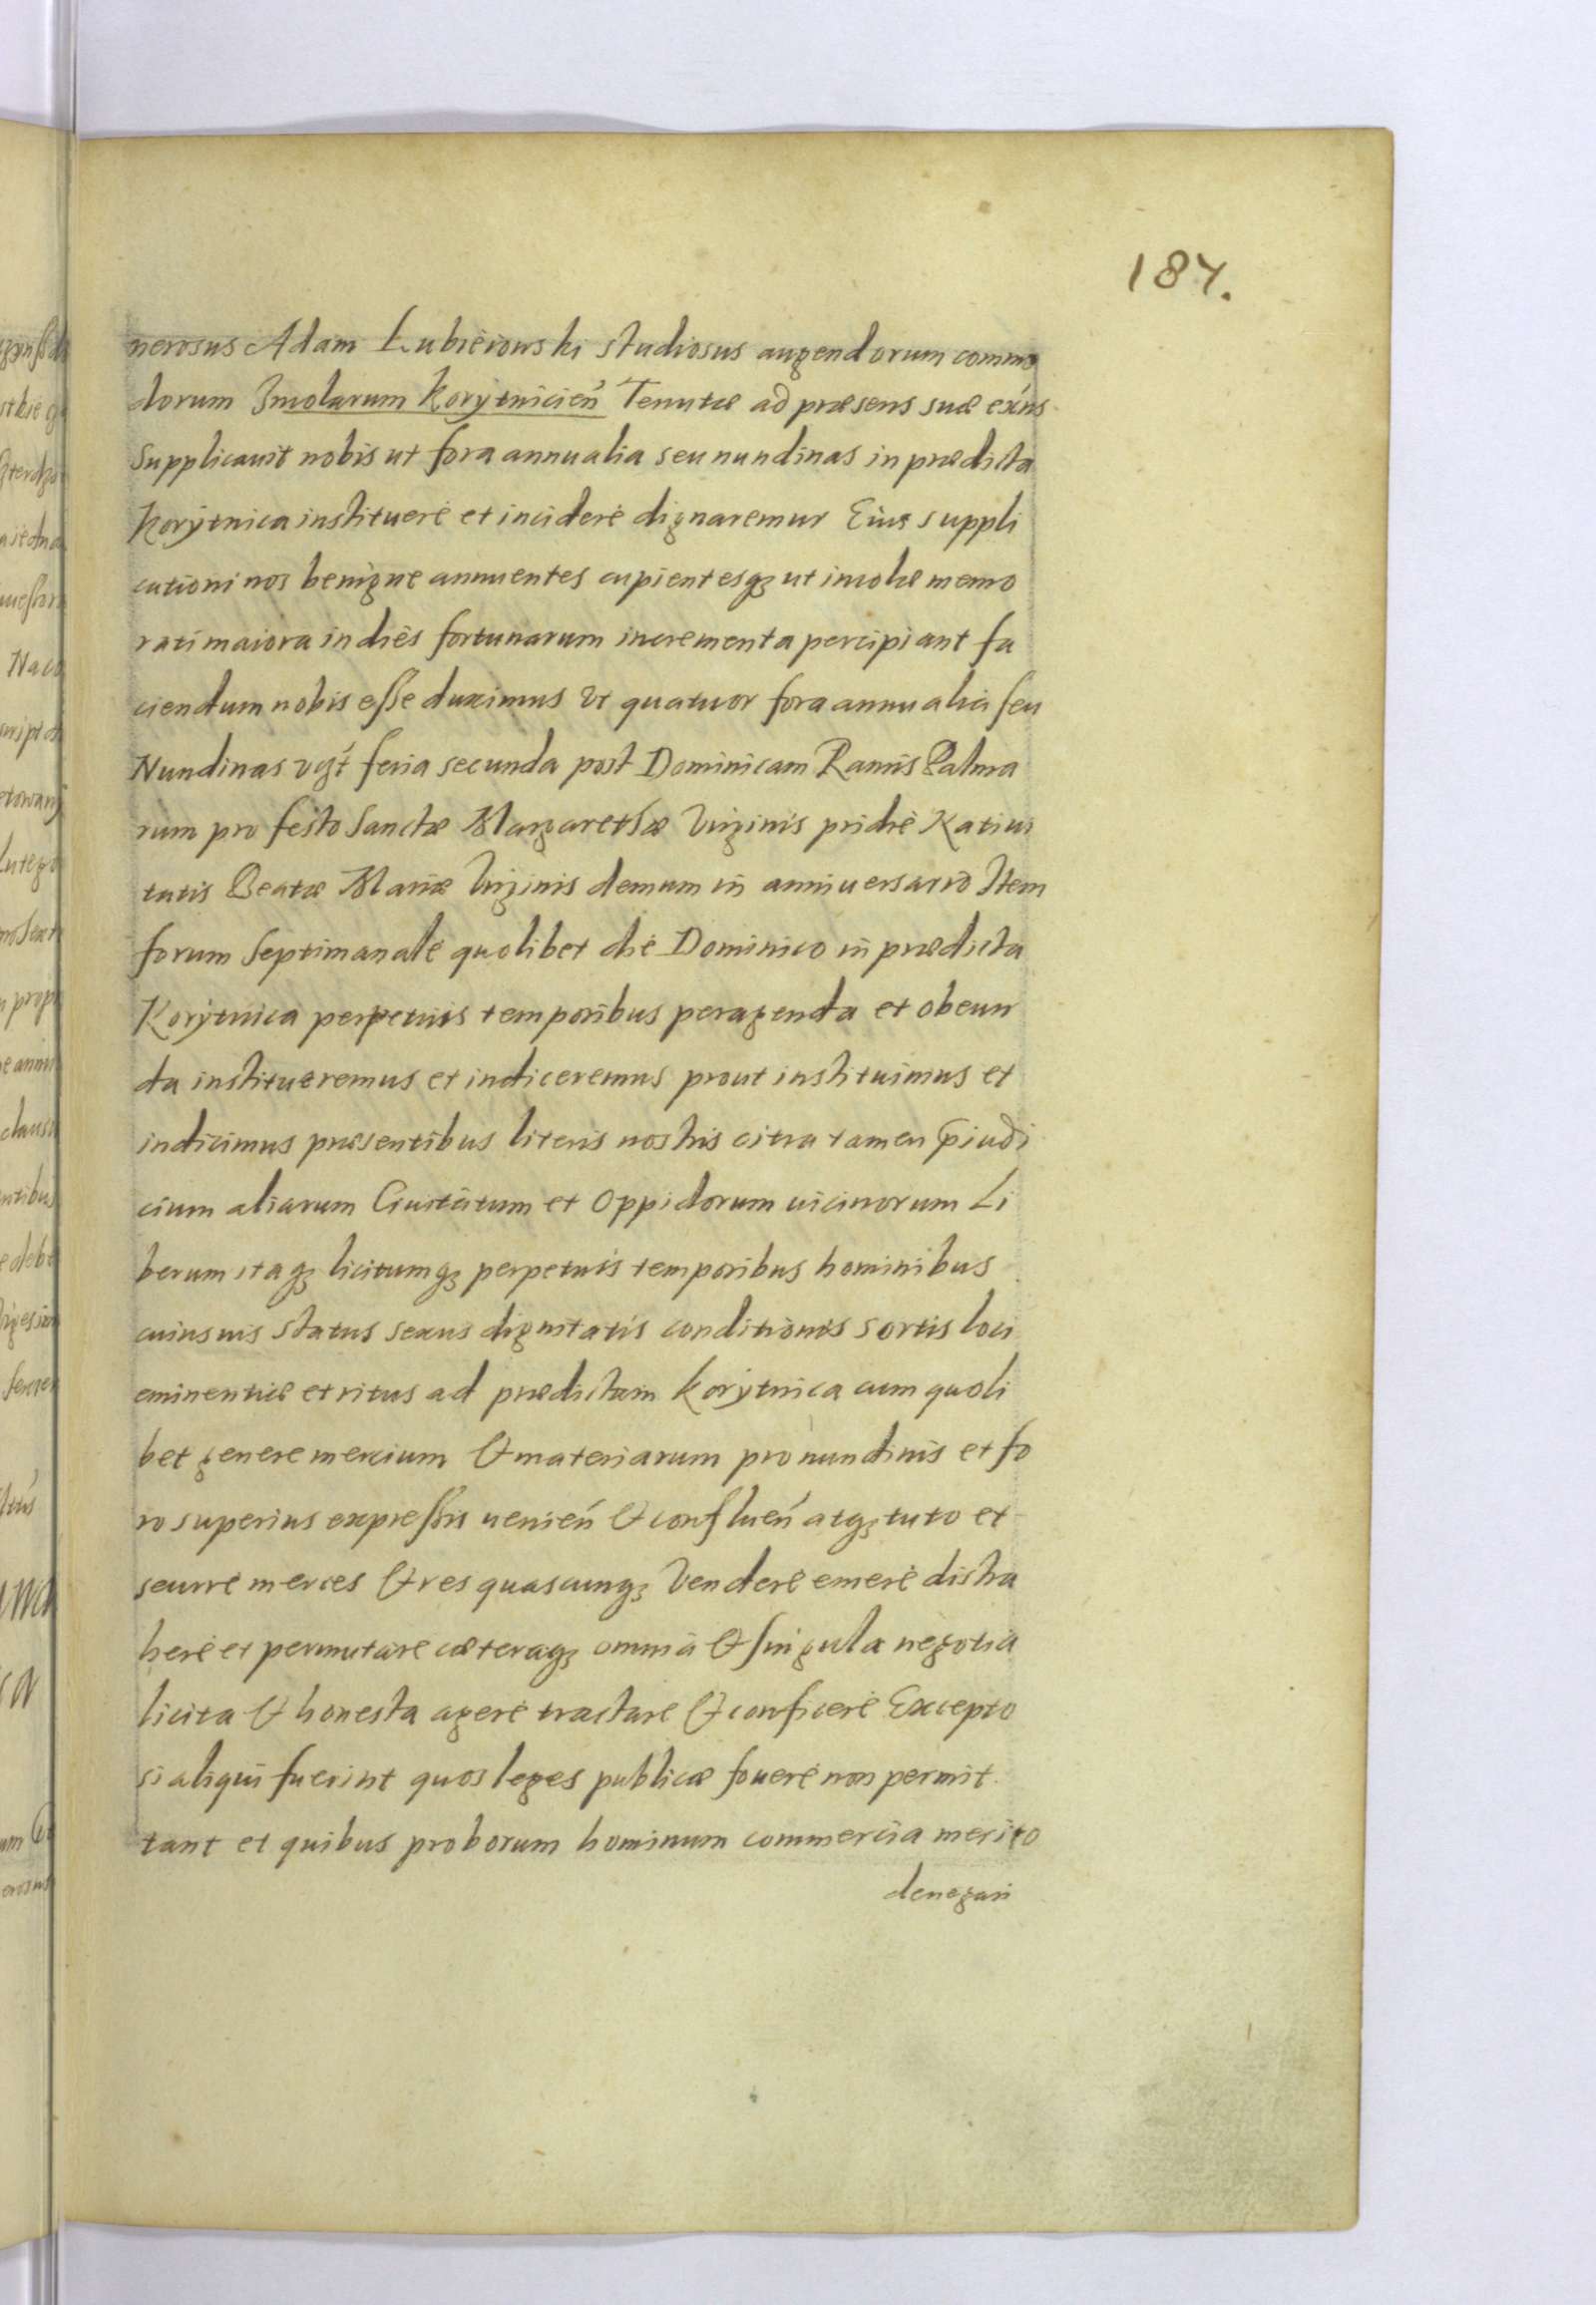 187.
nerosus Adam Łubierowski studiosus augendorum commo
dorum Jncolarum Korytnicień Tenutæ ad præsens suæ exńs
Supplicauit nobis ut fora annualia seu nundinas in prædicta
Korÿtnica instituere et incidere dignaremur Eius suppli
cationi nos benigne annuentes cupientesqꝫ ut incolæ memo
rati maiora in dies fortunarum incrementa percipiant fa
ciendum nobis eße duximus Vt quatuor fora annualia seu
Nundinas vgt́ feria secunda post Dominicam Ramis Palma
rum pro festo Sanctæ Margarethæ Virginis pridie Natiui
tatis Beatæ Mariæ Virginis demum in anniuersario Item
forum Septimanale quolibet die Dominico in prædicta
Korÿtnica perpetuis temporibus peragenda et obeun
da institueremus et indiceremus prout instituimus et
indicimus præsentibus literis nostris citra tamen p̄iudi
cium aliarum Ciuitatum et Oppidorum uicinorum Li
berum itaqꝫ licitumqꝫ perpetuis temporibus hominibus
cuiusuis status sexus dignitatis conditionis sortis loci
eminentiæ et ritus ad prædictam Korÿtnica cum quoli
bet genere mercium & materiarum pro nundinis et fo
ro superius expreßis venień & conflueń atqꝫ tuto et
secure merces & res quascunqꝫ Vendere emere distra
here et permutare cæteraqꝫ omnia & singula negotia
licita & honesta agere tractare & conficere Excepto
si aliqui fuerint quos leges publicæ fouere non permit
tant et quibus proborum hominum commercia merito
denegari